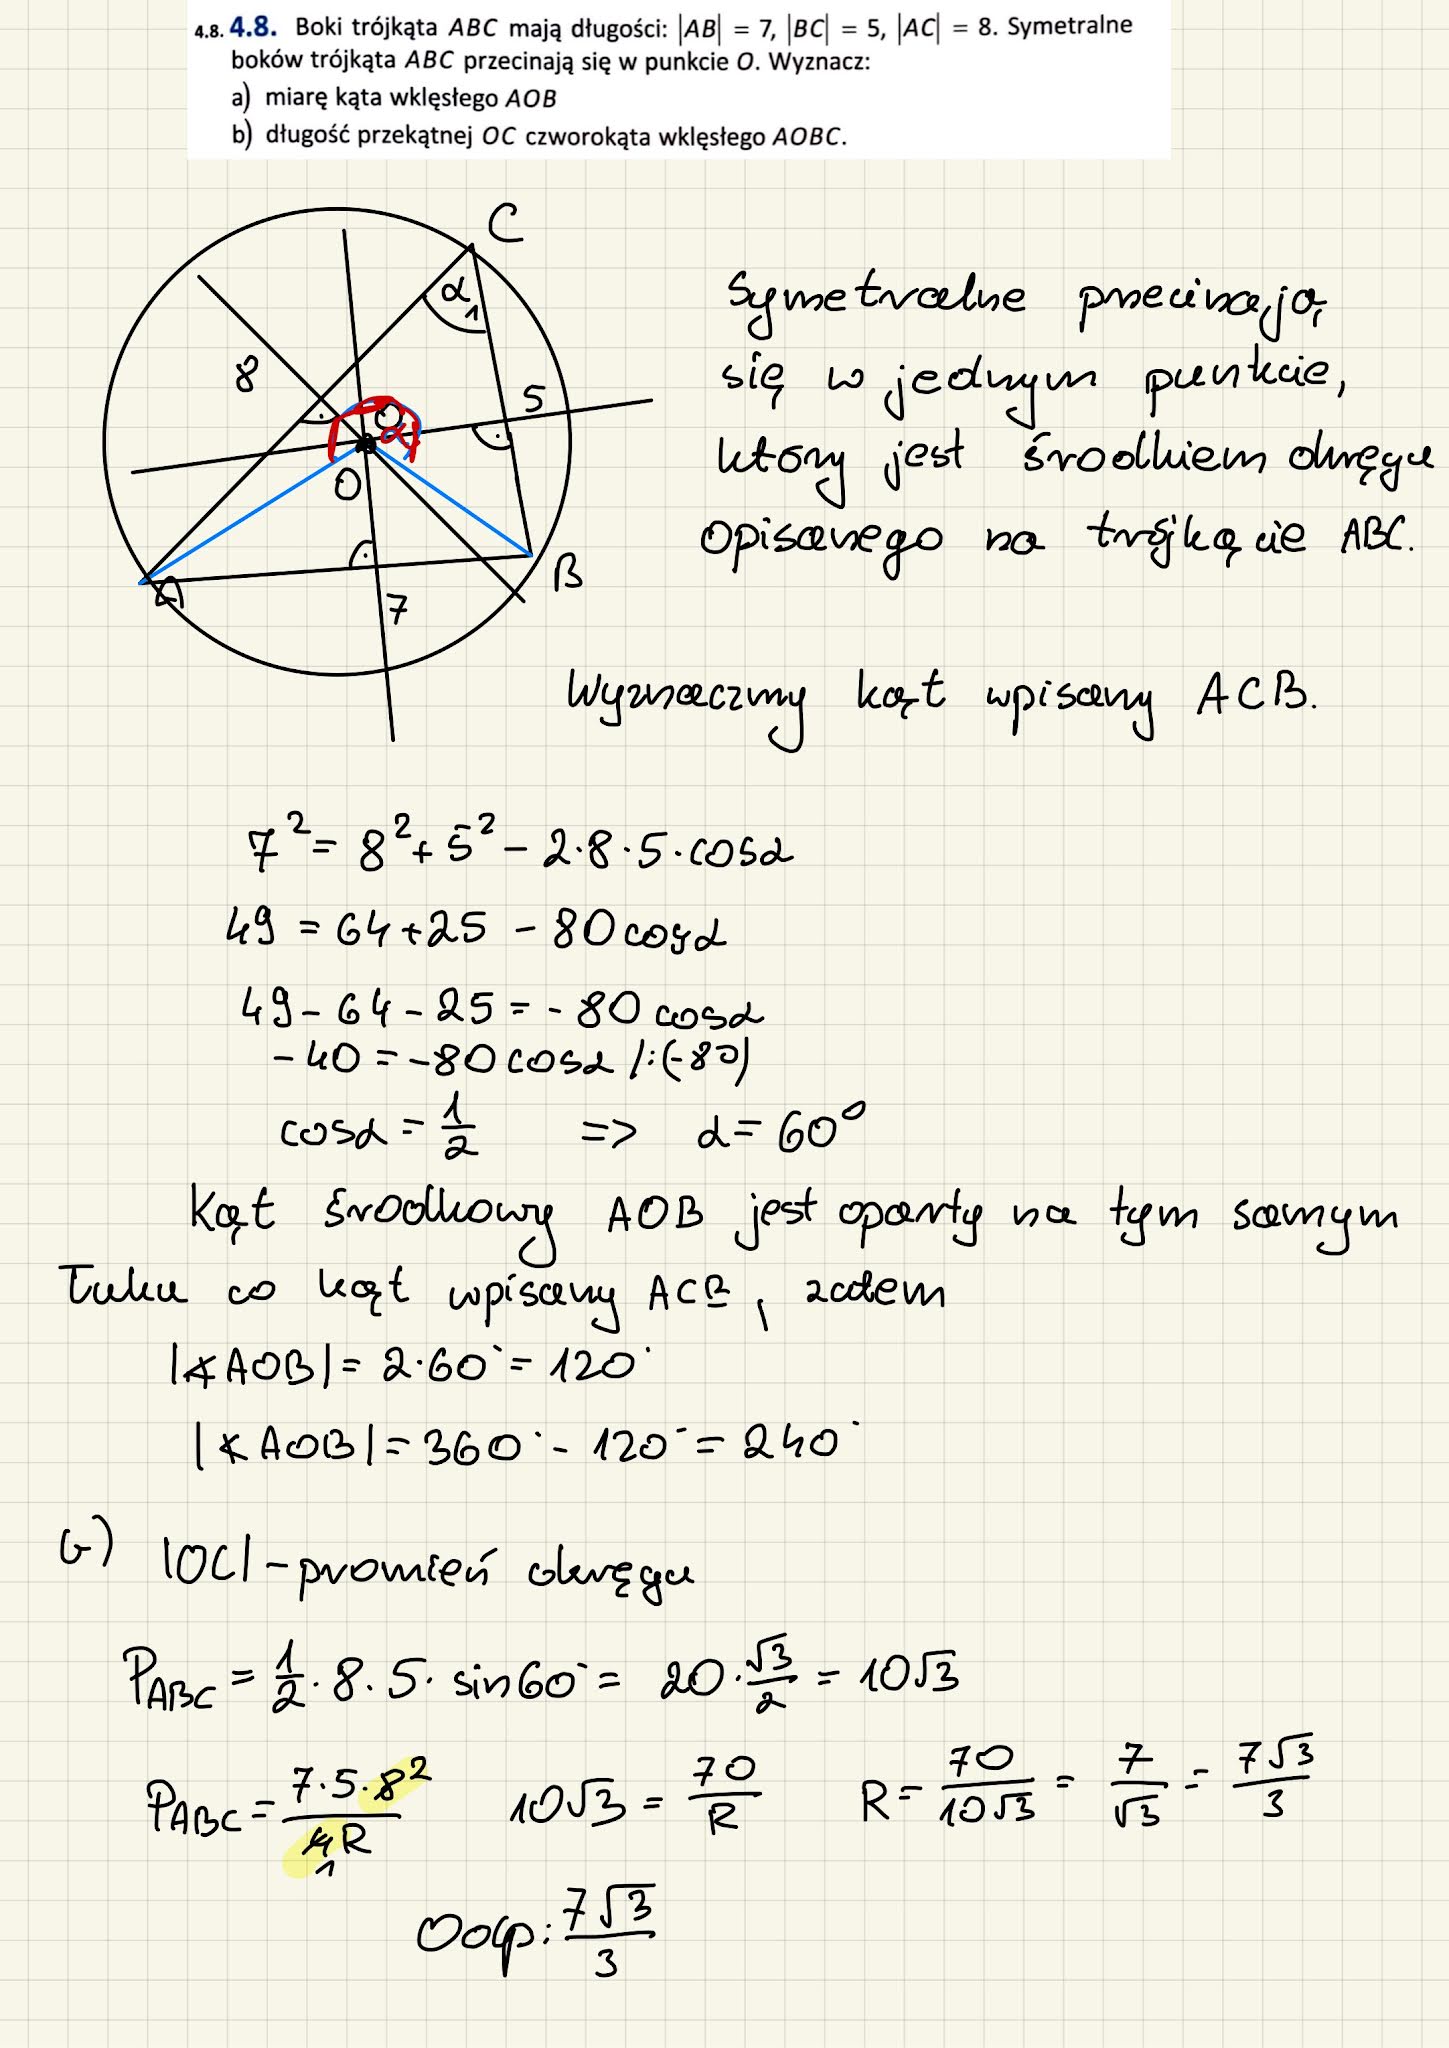 4.8. 4.8. Boki trójkąta ABC mają długości: |AB| = 7, |BC| = 5, |AC| = 8. Symetralne
boków trójkąta ABC przecinają się w punkcie O. Wyznacz:
a) miarę kąta wklęsłego AOB
b) długość przekątnej OC czworokąta wklęsłego AOBC.
C
α₁
8
5
O
α
O
A
B
7
Symetralne przecinają
się w jednym punkcie,
który jest środkiem okręgu
opisanego na trójkącie ABC.
Wyznaczmy kąt wpisany ACB.
7² = 8² + 5² - 2·8·5·cosα
49 = 64 + 25 - 80 cosα
49 - 64 - 25 = -80 cosα
-40 = -80 cosα /:(-80)
cosα = 1/2 => α = 60°
Kąt środkowy AOB jest oparty na tym samym
łuku co kąt wpisany ACB, zatem
|∢AOB| = 2·60° = 120°
|∢AOB| = 360° - 120° = 240°
b) |OC| - promień okręgu
P_ABC = 1/2 · 8 · 5 · sin60° = 20 · √3/2 = 10√3
P_ABC = 7·5·8²/4₁R 10√3 = 70/R R = 70/10√3 = 7/√3 = 7√3/3
Odp: 7√3/3